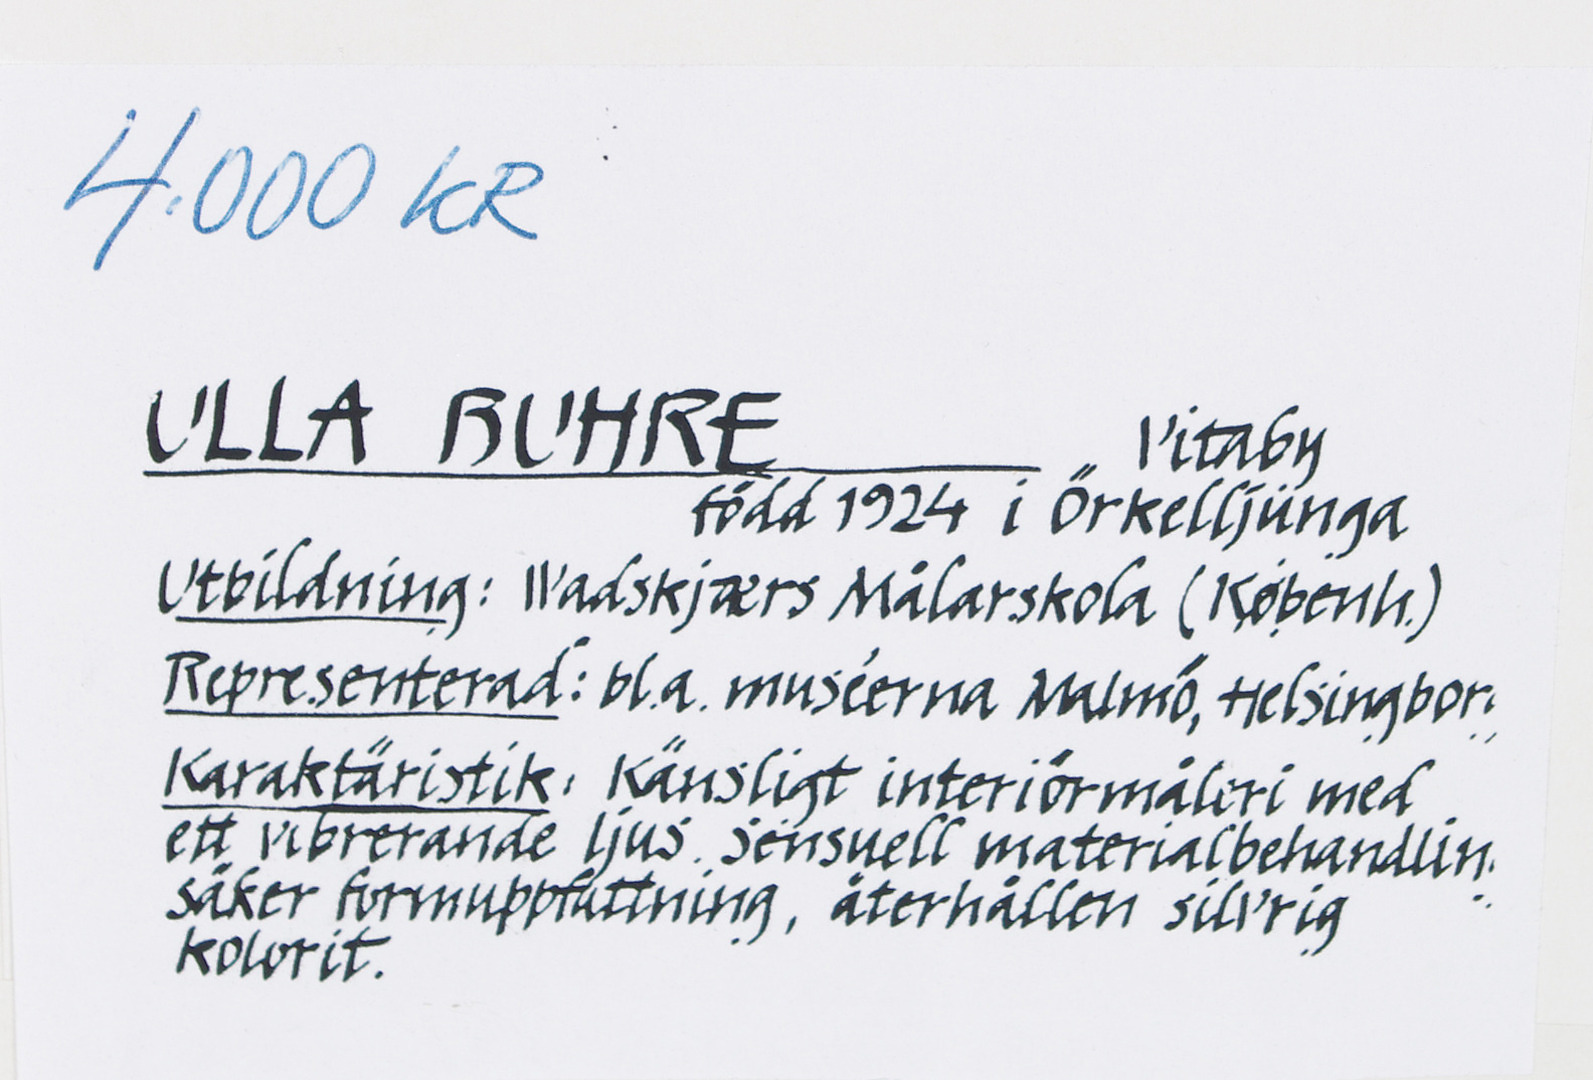 4.000 KR
ULLA BUHRE Vitaby
född 1924 i Örkelljunga
Utbildning: Wadskjærs Målarskola (Københ.)
Representerad: bl.a. muséerna Malmö, Helsingbor
Karaktäristik: Känsligt interiörmåleri med
ett vibrerande ljus. Sensuell materialbehandlin
säker formuppfattning, återhållen silvrig
kolorit.